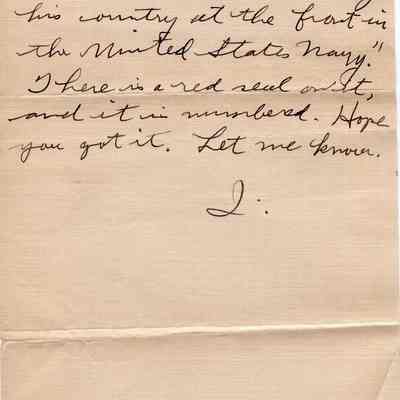 his country at the front in
the United States Navy."
There is a red seal on it,
and it is numbered. Hope
you got it. Let me know.
I.